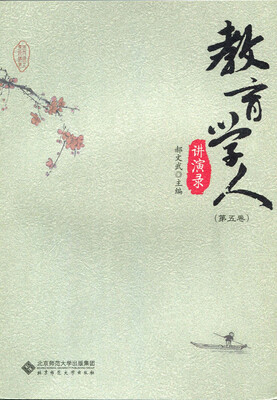 教育学人
讲演录
(第五卷)
郝文武◎主编
北京师范大学出版集团
北京师范大学出版社